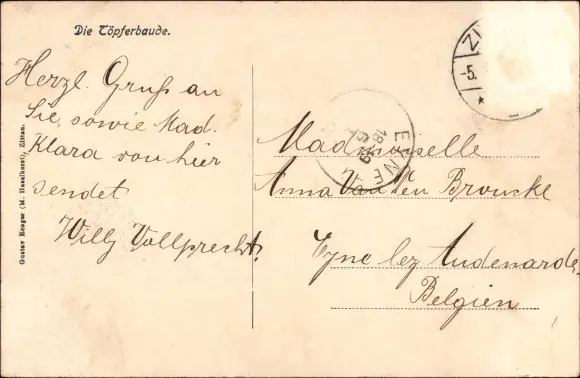 Die Töpferbaude.
Herzl. Gruß an
Sie, sowie Mad.
Klara von hier
sendet
Willy Vollprecht.
Gustav Keuger (M. Haselhorst), Zittau.
Z
-5.
EYNE
18
Madmoiselle
Anna Van Den Broucke
Eyne lez Audenarde,
Belgien